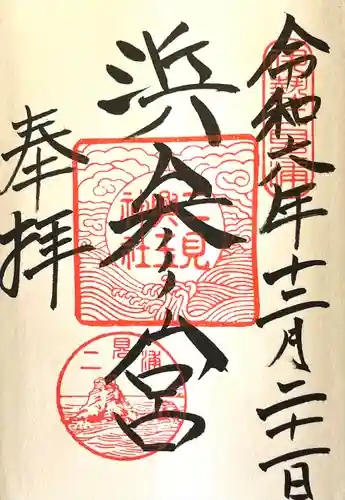 令和六年十二月二十一日
浜参宮
奉拝
二見
興玉
神社
二見浦